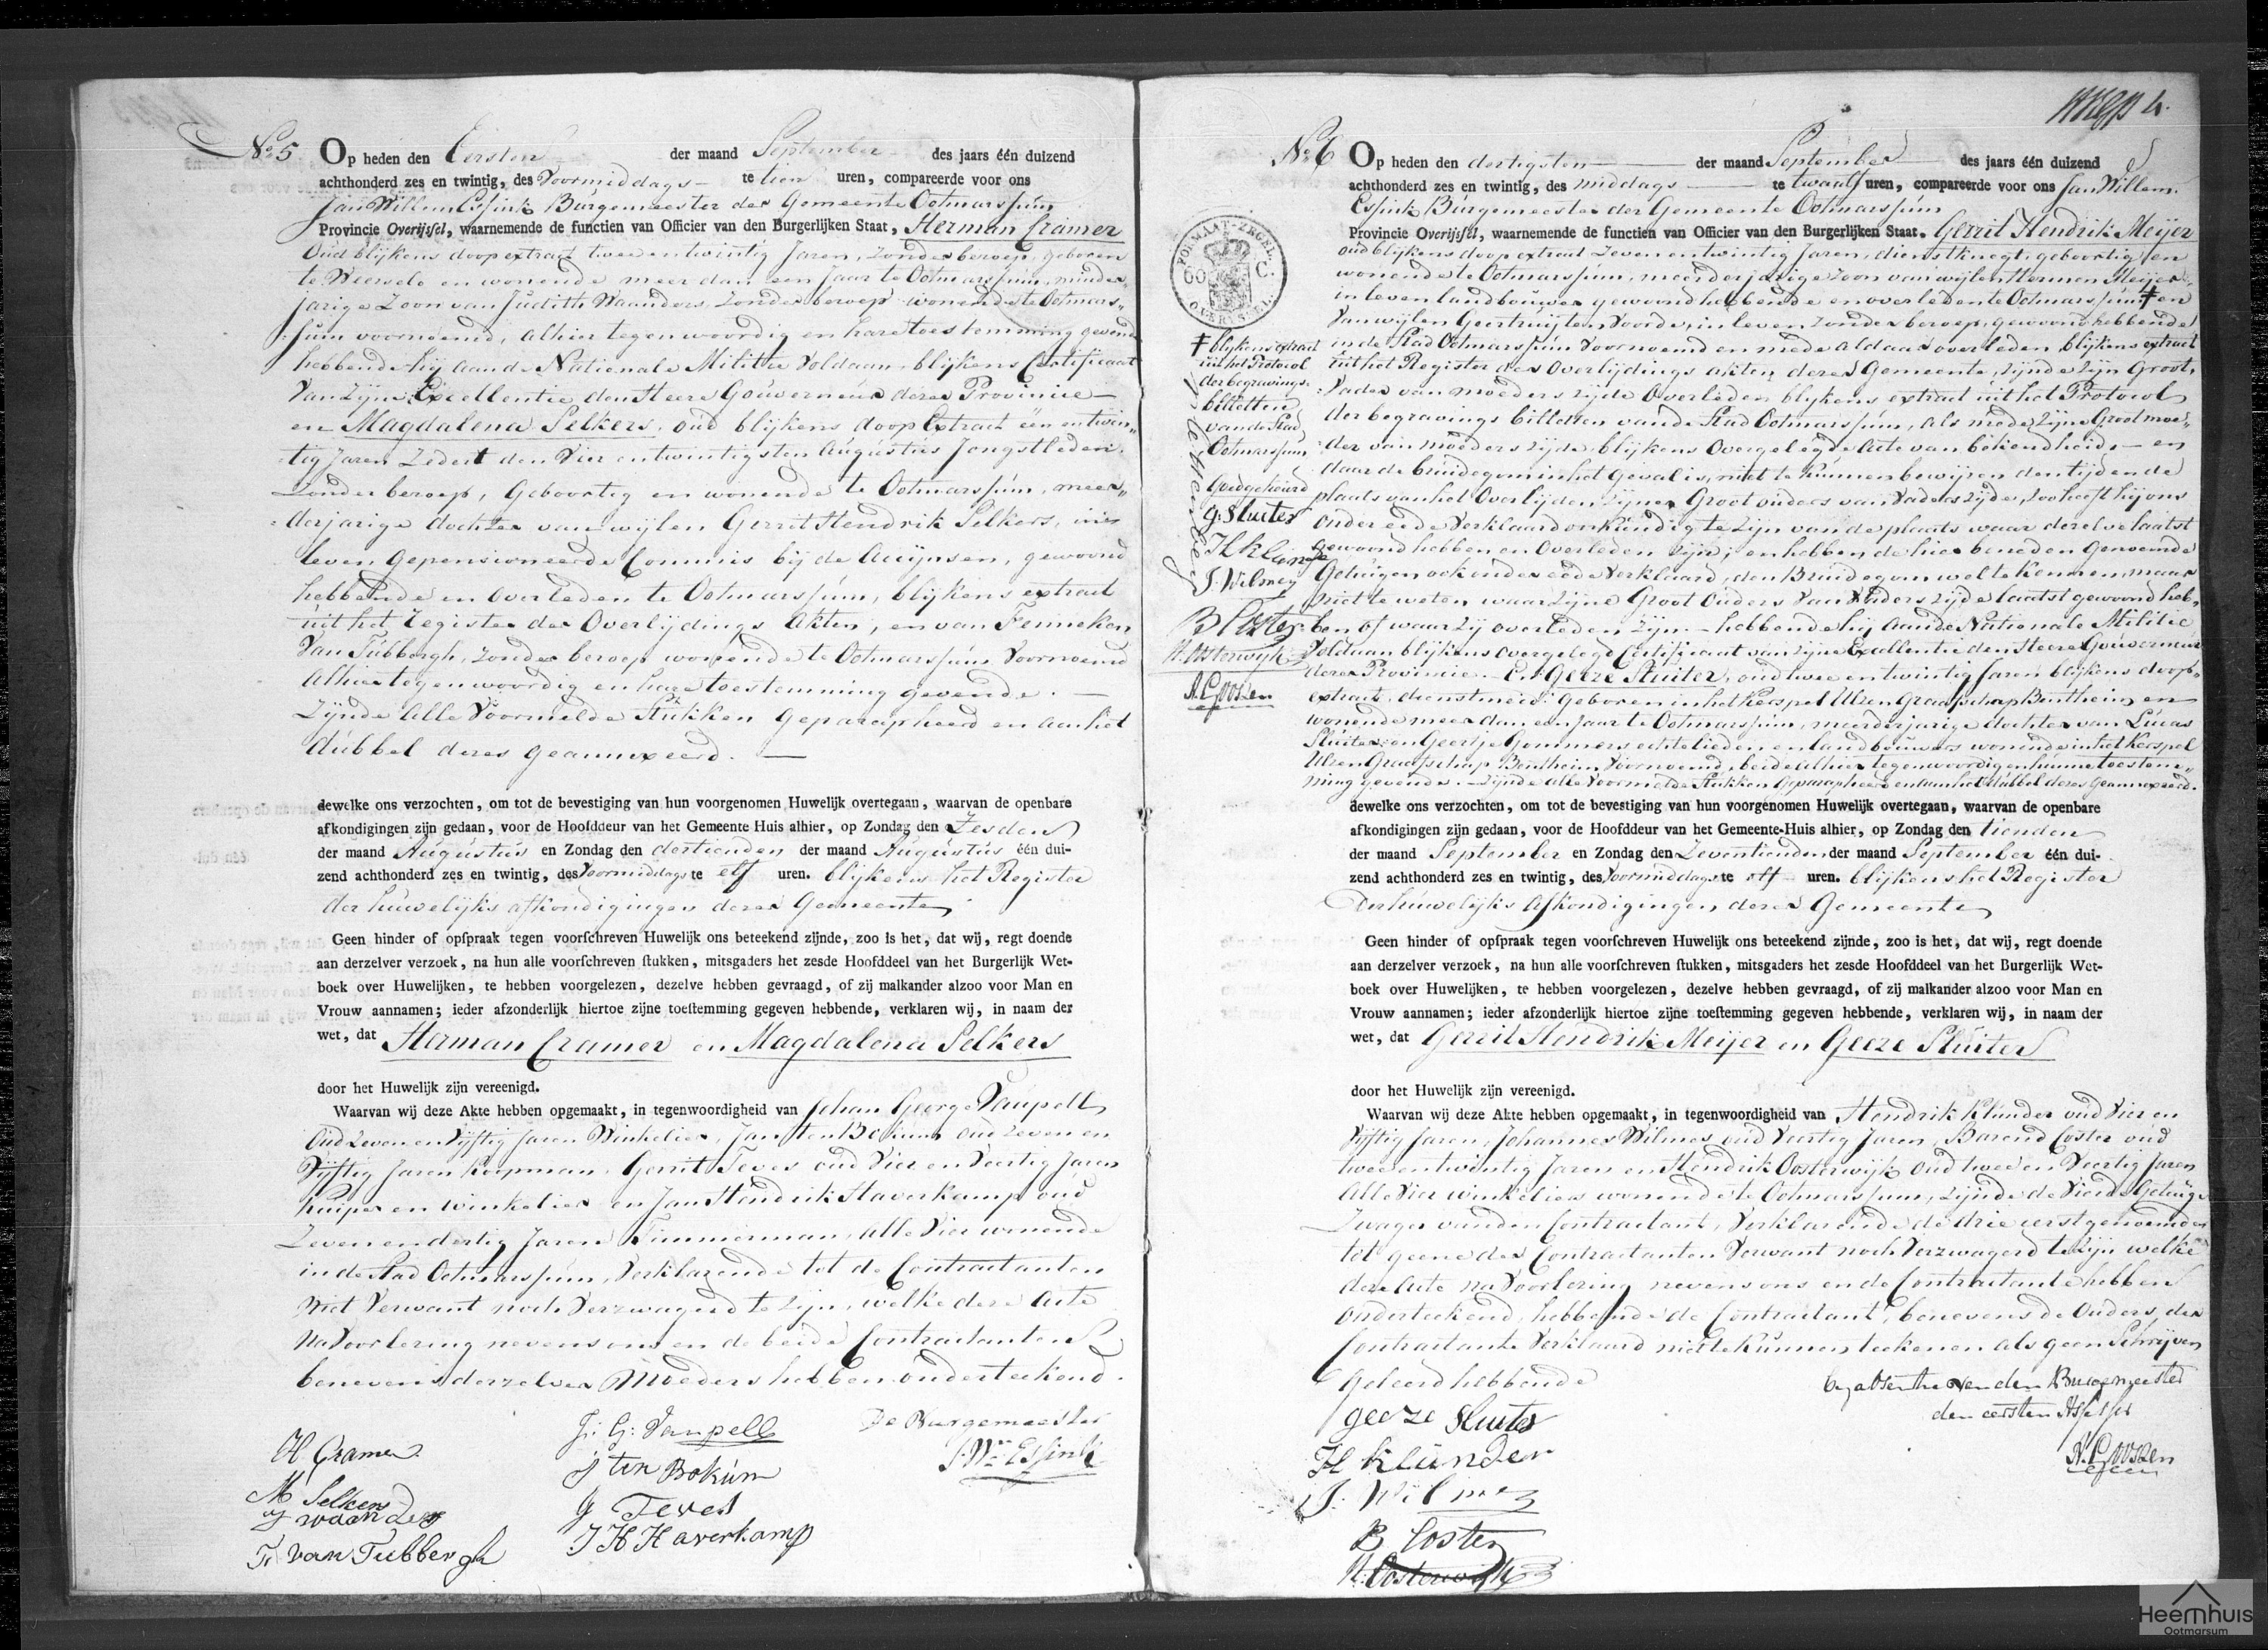 No 5 Op heden den Eersten der maand September des jaars één duizend
achthonderd zes en twintig, des Voormiddags te tien uren, compareerde voor ons
Jan Willem Essink Burgemeester der Gemeente Ootmarssum
Provincie Overijssel, waarnemende de functien van Officier van den Burgerlijken Staat, Herman Cramer
Oud blijkens doopextract twee en twintig Jaren, zonder beroep, geboren
te Weerselo en wonende meer dan een Jaar te Ootmarssum, minder„
jarige Zoon van Judith Waanders zonder beroep wonende te Ootmars„
sum voornoemd, alhier tegenwoordig en hare toestemming gevend
hebbende hij aan de Nationale Militie voldaan, blijkens Certificaat
van Zijne Excellentie den Heere Gouverneur dezer Provincie —
en Magdalena Selkers, oud blijkens doop Extract een en twin„
tig Jaren zedert den Vier en twintigsten Augustus Jongstleden,
zonder beroep, geboortig en wonende te Ootmarssum, meer„
derjarige dochter van wijlen Gerrit Hendrik Selkers, in
leven gepensioneerde Commis bij de Accijnsen, gewoond
hebbende en overleden te Ootmarssum, blijkens extract
uit het Register der Overlijdings Akten, en van Fenneken
van Tubbergh, zonder beroep wonende te Ootmarssum voornoemd
alhier tegenwoordig en hare toestemming gevende. —
Zijnde alle voormelde Stukken geparapheerd en aan het
dubbel dezes geannexeerd. —
dewelke ons verzochten, om tot de bevestiging van hun voorgenomen Huwelijk overtegaan, waarvan de openbare
afkondigingen zijn gedaan, voor de Hoofddeur van het Gemeente Huis alhier, op Zondag den Zesden
der maand Augustus en Zondag den dertienden der maand Augustus één dui-
zend achthonderd zes en twintig, des Voormiddags te elf uren. blijkens het Register
der huwelijks afkondigingen dezer Gemeente
Geen hinder of opspraak tegen voorschreven Huwelijk ons beteekend zijnde, zoo is het, dat wij, regt doende
aan derzelver verzoek, na hun alle voorschreven stukken, mitsgaders het zesde Hoofddeel van het Burgerlijk Wet-
boek over Huwelijken, te hebben voorgelezen, dezelve hebben gevraagd, of zij malkander alzoo voor Man en
Vrouw aannamen; ieder afzonderlijk hiertoe zijne toestemming gegeven hebbende, verklaren wij, in naam der
wet, dat Herman Cramer en Magdalena Selkers
door het Huwelijk zijn vereenigd.
Waarvan wij deze Akte hebben opgemaakt, in tegenwoordigheid van Johan George Vaupell
Oud Zeven en Vijftig Jaren Winkelier, Jan ten Bokum oud zeven en
Vijftig Jaren Koopman, Gerrit Teves oud Vier en Veertig Jaren
Kuiper en winkelier en Jan Hendrik Haverkamp oud
Zeven en dertig Jaren Timmerman, alle Vier wonende
in de Stad Ootmarssum, Verklarende tot de Contractanten
niet Verwant noch Verzwagerd te zijn, welke deze Acte
na Voorlezing nevens ons en de beide Contractanten
benevens derzelver Moeders hebben onderteekend.
H Cramer
M Selkers
J waanders
F. van Tubbergh
J: G: Vaupell
J ten Bokum
G Teves
J H Haverkamp
De Burgemeester
J. Wm Essink
No 6 Op heden den dertigsten der maand September des jaars één duizend
achthonderd zes en twintig, des middags te twaalf uren, compareerde voor ons Jan Willem
Essink Burgemeester der Gemeente Ootmarssum
Provincie Overijssel, waarnemende de functien van Officier van den Burgerlijken Staat. Gerrit Hendrik Meijer
oud blijkens doop extract zeven en twintig Jaren, dienstknegt, geboortig en
wonende te Ootmarssum, meerderjarige zoon van wijlen Hermen Meijer,
in leven landbouwer gewoond hebbende en overleden te Ootmarssum † en
van wijlen Geertruij ten Voorde, in leven zonder beroep, gewoond hebbende
in de Stad Ootmarssum voornoemd en mede aldaar overleden blijkens extract
uit het Register der Overlijdings akten dezer Gemeente, zijnde zijn Groot,
vader van moeders zijde overleden blijkens extract uit het Protocol
der begravings billetten van de Stad Ootmarssum, als mede zijne Grootmoe„
der van moeders zijde blijkens overgelegde Acte van bekendheid — en
daar de bruidegom in het geval is, niet te kunnen bewijzen den tijd en de
plaats van het Overlijden zijner Grootouders van vaders zijde, zoo heeft hij ons
onder eede verklaard onkundig te zijn van de plaats waar dezelve laatst
gewoond hebben en overleden zijn; en hebben de hier beneden genoemde
Getuigen ook onder eede verklaard, den Bruidegom wel te kennen, maar
niet te weten waar zijne Groot Ouders van vaders zijde laatst gewoond heb„
ben of waar zij overleden zijn — hebbende hij aan de Nationale Militie
voldaan blijkens overgelegd Certificaat van zijne Excellentie den Heere Gouverneur
dezer Provincie. — En Geeze Sluiter, oud twee en twintig Jaren blijkens doop„
extract, dienstmeid, geboren in het kerspel Ulzen Graafschap Bentheim en
wonende meer dan een Jaar te Ootmarssum, meerderjarige dochter van Lucas
Sluiter en Geertje Gommers echtelieden en landbouwers wonende in het Kerspel
Ulzen Graafschap Bentheim voornoemd, beide alhier tegenwoordig en hunne toestem„
ming gevende. — Zijnde alle voormelde Stukken geparapheerd en aan het dubbel dezes geannexeerd.
FORMAAT-ZEGEL
60 C.
OVERYSSEL
† blijkens extract
uit het Protocol
der begravings-
billetten
van de Stad
Ootmarssum
Goedgekeurd
g. Sluiter
H klunder
J. Wilmes
B Coster
H. Oosterwijk
A. Goosen
dewelke ons verzochten, om tot de bevestiging van hun voorgenomen Huwelijk overtegaan, waarvan de openbare
afkondigingen zijn gedaan, voor de Hoofddeur van het Gemeente-Huis alhier, op Zondag den tienden
der maand September en Zondag den Zeventienden der maand September één dui-
zend achthonderd zes en twintig, des Voormiddags te elf uren. blijkens het Register
der huwelijks Afkondigingen dezer Gemeente
Geen hinder of opspraak tegen voorschreven Huwelijk ons beteekend zijnde, zoo is het, dat wij, regt doende
aan derzelver verzoek, na hun alle voorschreven stukken, mitsgaders het zesde Hoofddeel van het Burgerlijk Wet-
boek over Huwelijken, te hebben voorgelezen, dezelve hebben gevraagd, of zij malkander alzoo voor Man en
Vrouw aannamen; ieder afzonderlijk hiertoe zijne toestemming gegeven hebbende, verklaren wij, in naam der
wet, dat Gerrit Hendrik Meijer en Geeze Sluiter
door het Huwelijk zijn vereenigd.
Waarvan wij deze Akte hebben opgemaakt, in tegenwoordigheid van Hendrik Klunder oud Vier en
Vijftig Jaren, Johannes Wilmes oud Veertig Jaren, Barend Coster oud
twee en twintig Jaren en Hendrik Oosterwijk oud twee en Veertig Jaren
Alle Vier winkeliers wonende te Ootmarssum, zijnde de Vierde Getuige
Zwager van den Contractant, Verklarende de drie eerstgenoemden
tot geene der Contractanten Verwant noch Verzwagerd te zijn welke
deze Acte na Voorlezing nevens ons en de Contractante hebben
onderteekend, hebbende de Contractant, benevens de Ouders der
Contractante Verklaard niet te kunnen teekenen als geen Schrijven
Geleerd hebbende
geeze Sluiter
H klunder
J. Wilmes
B Coster
H. Oosterwijk
by absentie van den Burgemeester
den eersten Assessor
A. Goosen
Heemhuis
Ootmarsum